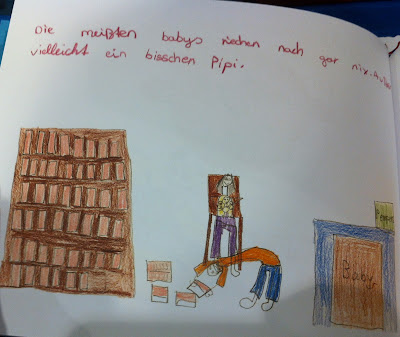 Die meißten babys riechen nach gar nix. Außer
vielleicht ein bisschen Pipi.
Baby